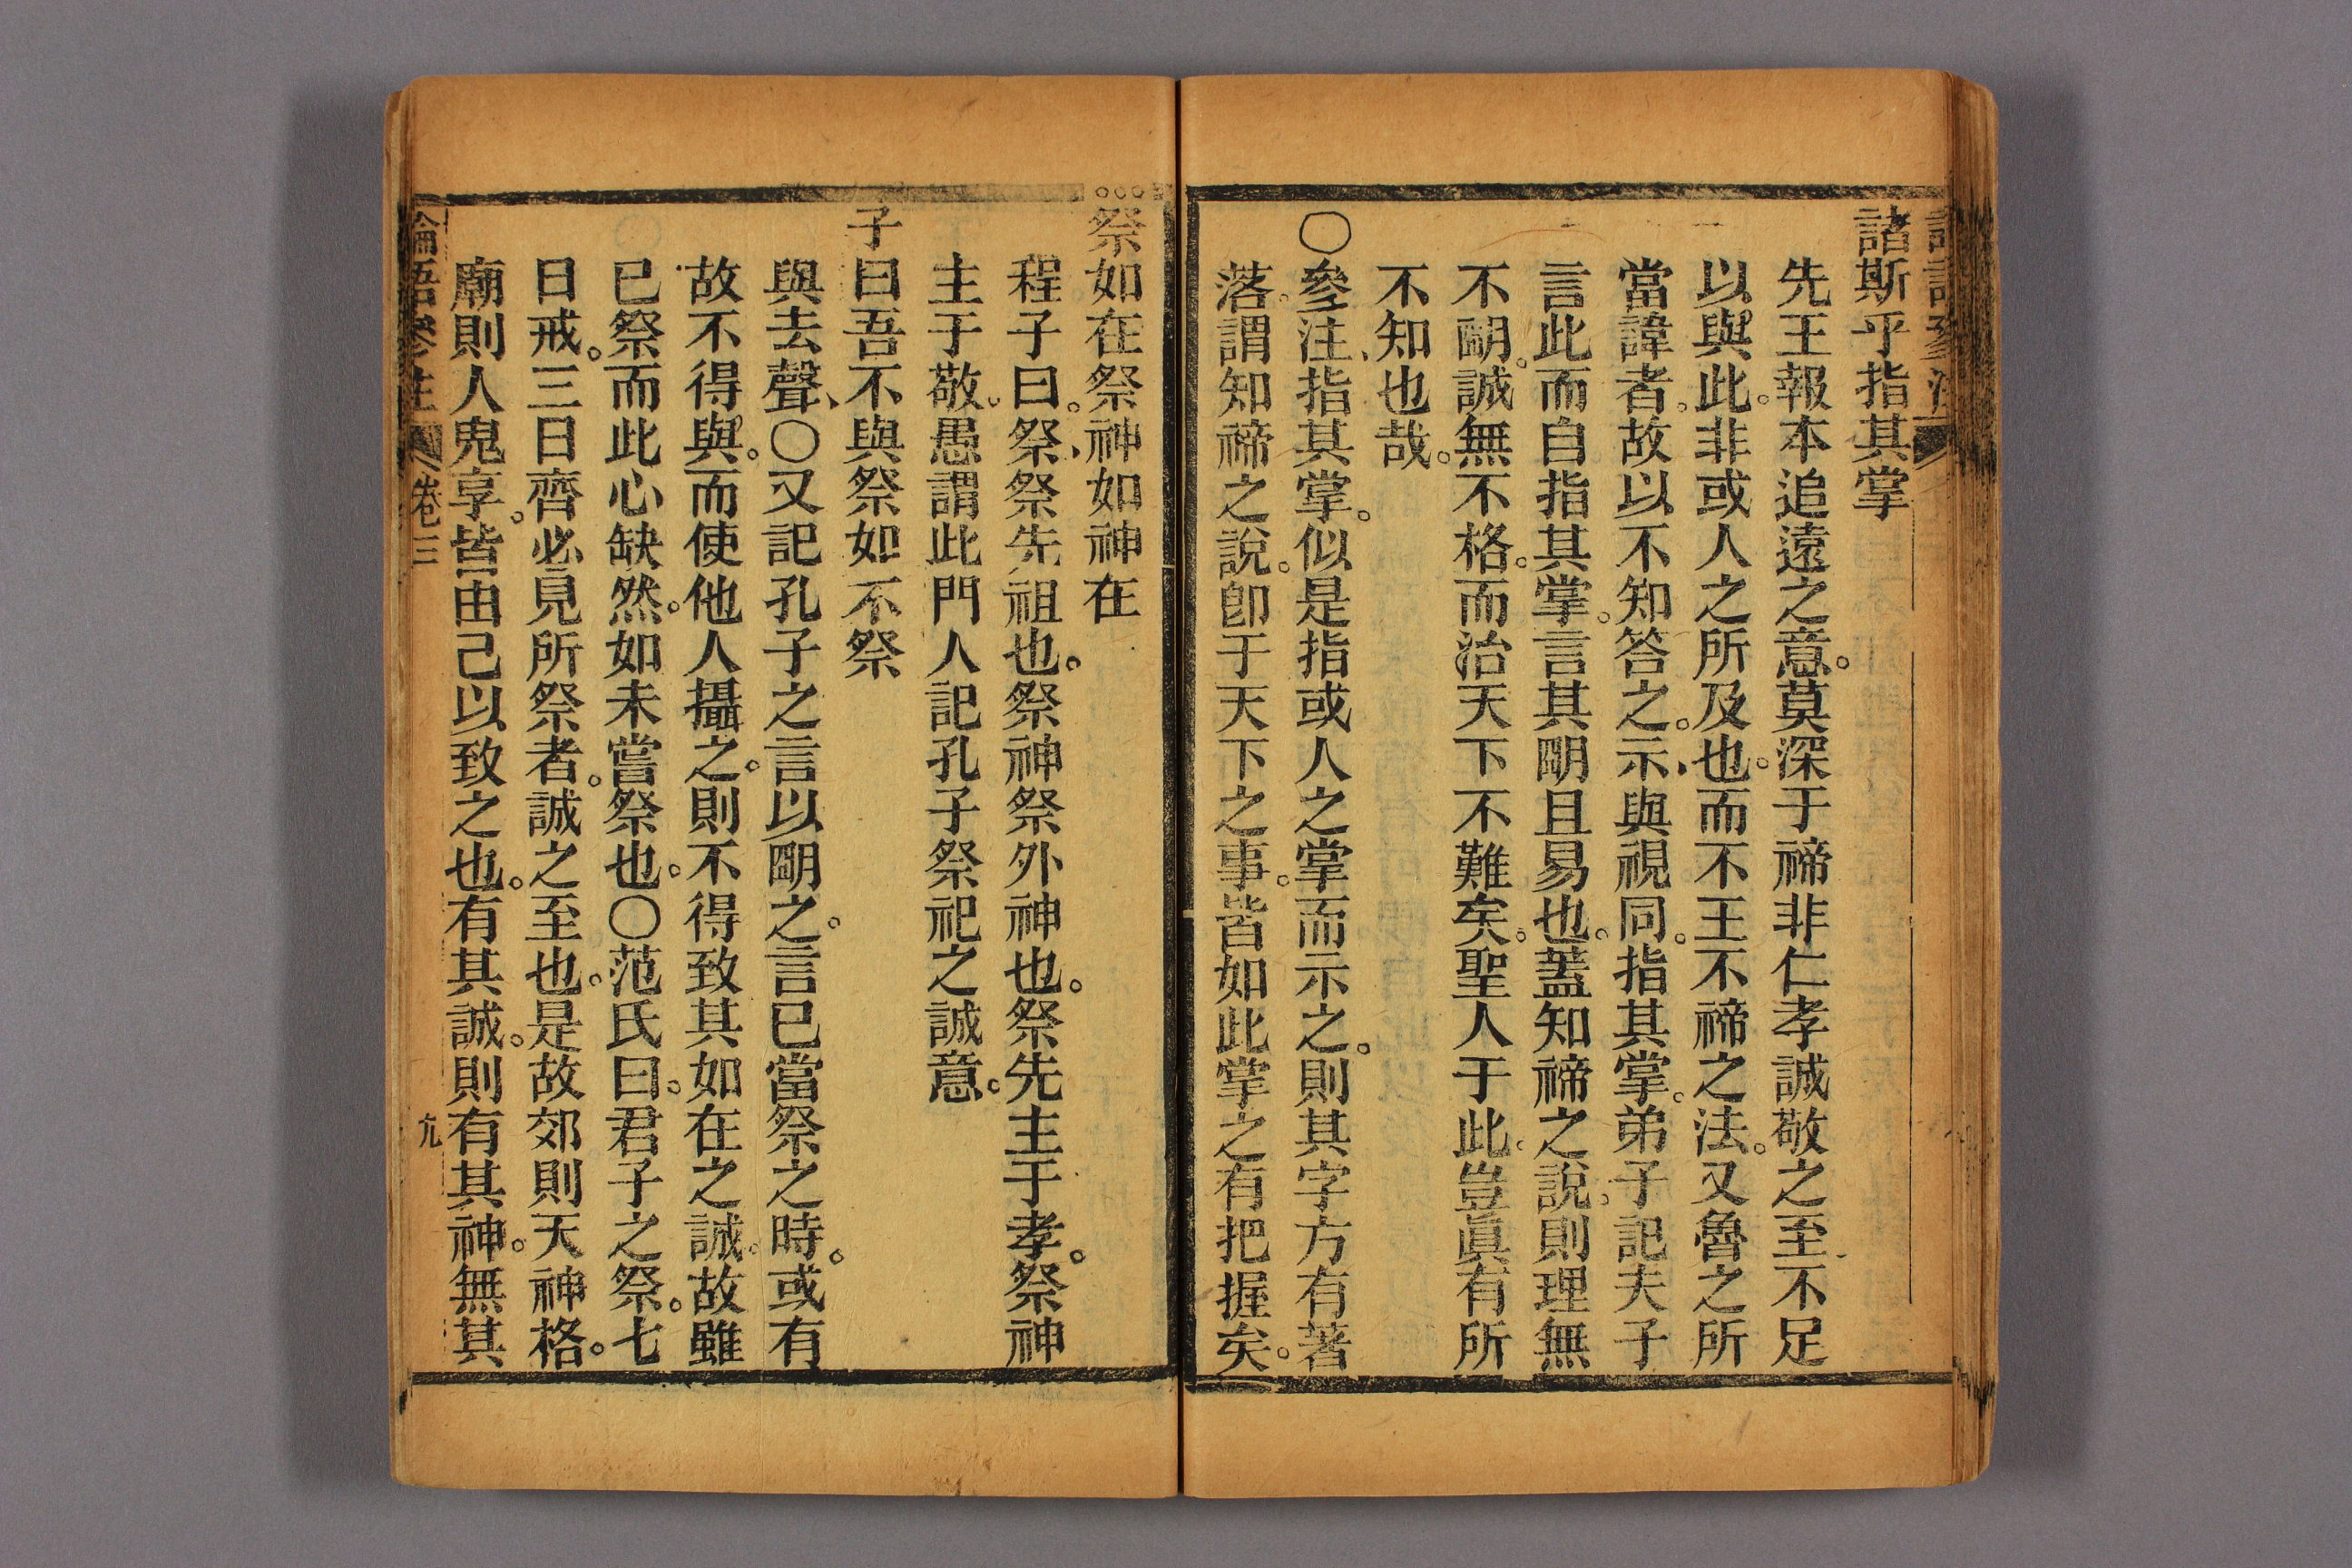 諸斯乎指其掌
先王報本追遠之意。莫深于禘非仁孝誠敬之至不足
以與此。非或人之所及也。而不王不禘之法。又魯之所
當諱者。故以不知答之。示、與視同。指其掌。弟子記夫子
言此而自指其掌。言其朙且易也。蓋知禘之說。則理無
不朙。誠無不格。而治天下不難矣。聖人于此。豈眞有所
不知也哉。
〇參注、指其掌。似是指或人之掌而示之。則其字方有著
落。謂知禘之說。卽于天下之事。皆如此掌之有把握矣。
祭如在祭神如神在
程子曰。祭、祭先祖也。祭神祭外神也。祭先主于孝。祭神
主于敬。愚謂此門人記孔子祭祀之誠意。
子曰吾不與祭如不祭
與去聲、〇又記孔子之言以朙之。言已當祭之時。或有
故不得與。而使他人攝之。則不得致其如在之誠。故雖
已祭而此心缺然。如未嘗祭也。〇范氏曰。君子之祭。七
日戒。三日齊必見所祭者。誠之至也。是故郊則天神格。
廟則人鬼享。皆由己以致之也。有其誠。則有其神。無其
論語參注 卷三 九